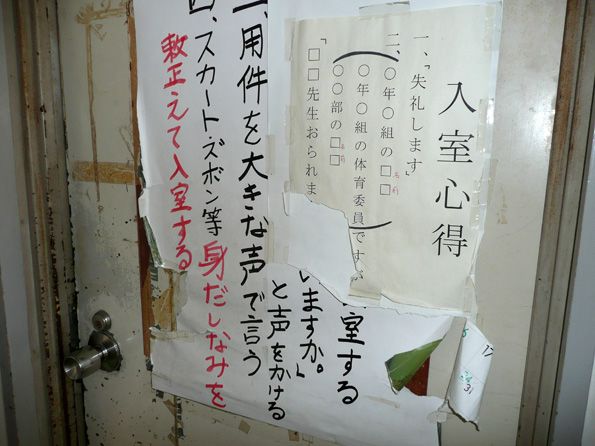 入室心得
一、「失礼します」
二、〇年〇組の□□
名前
〇年〇組の体育委員ですが
〇〇部の□□
名前
「□□先生おられま
室する
いますか。」
と声をかける
用件を大きな声で言う
四、スカート・ズボン等身だしなみを
整えて入室する
31